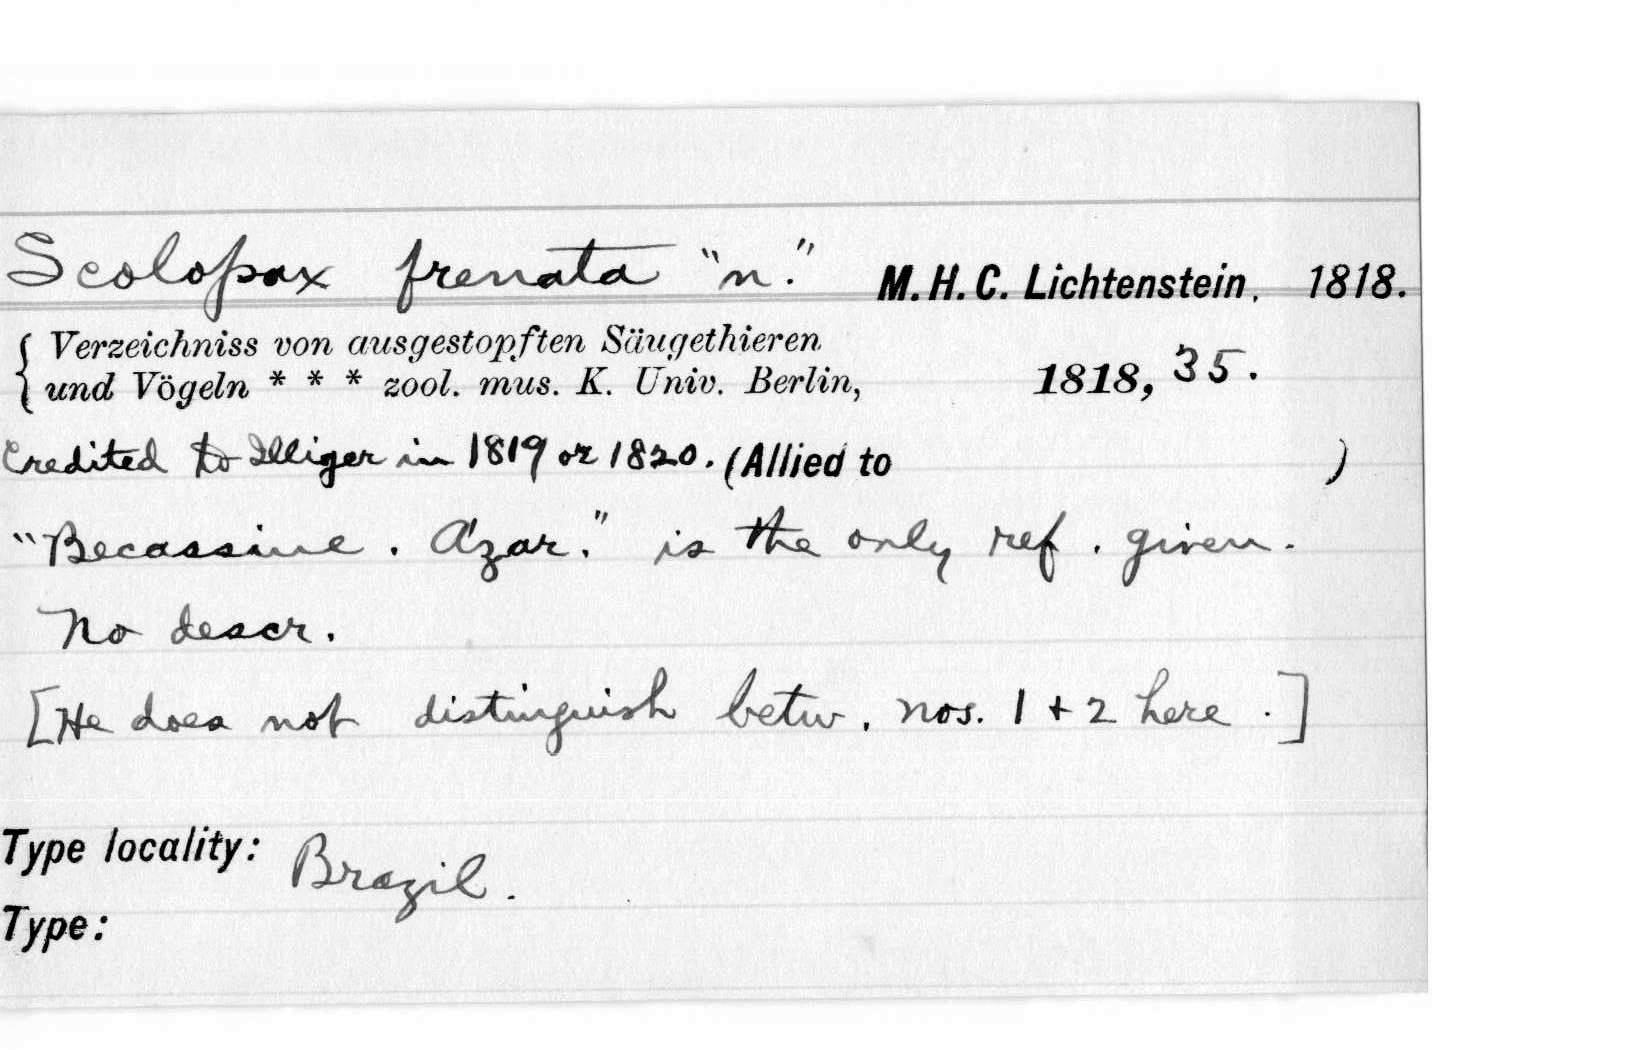 Scolopax frenata "n." M. H. C. Lichtenstein, 1818.
Verzeichniss von ausgestopften Säugethieren
und Vögeln * * * zool. mus. K. Univ. Berlin, 1818, 35.
Credited to Illiger in 1819 or 1820. (Allied to )
"Becassine. Azar." is the only ref. given.
No descr.
[He does not distinguish betw. nos. 1 + 2 here.]
Type locality: Brazil.
Type: